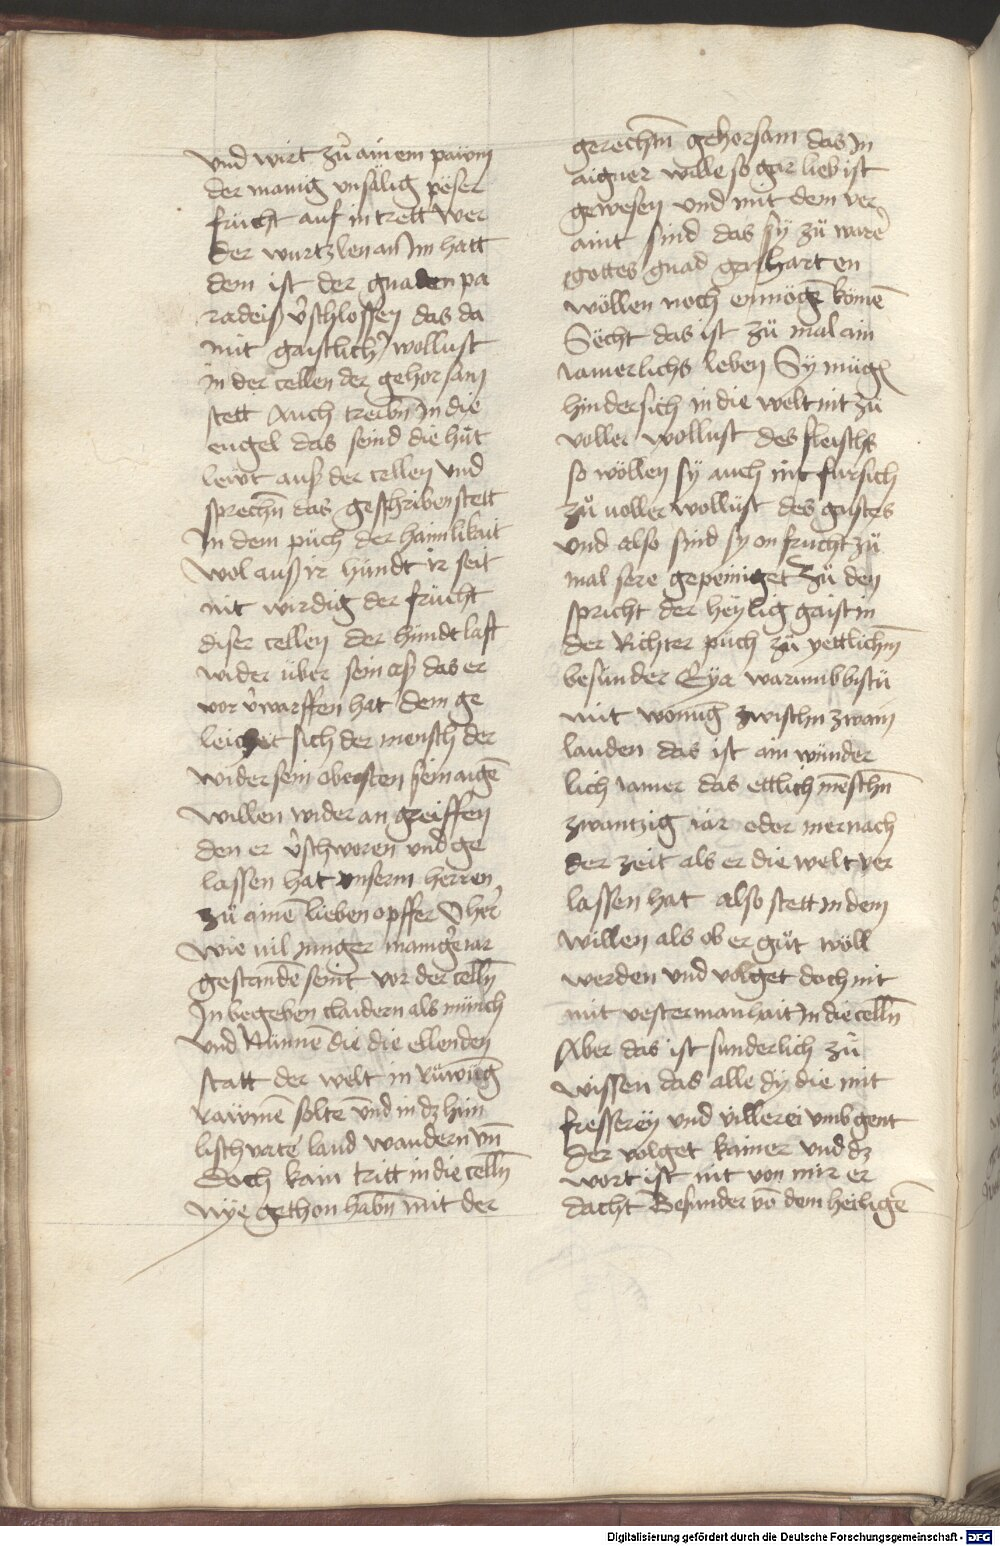 vnd wirt zů ainem pawm
der manig vnsälig pöser
frücht auf in trett wer
der wurtzlen an Im hatt
dem ist der gnaden pa
radeiß v̉schlossen das da
mit gaistlich wollust
in der cellen der gehorsam
stett Auch treibn̄ In die
engel das seind die hůt
lewt auß der cellen vnd
sprechn̄ das geschriben stett
In dem půch der haimlikait
Wol auß ir hundt ir seit
nit wirdig der frücht
diser cellen der hundt last
wider über sein aß das er
vor v̉warffen hat dem ge
leichet sich der mensch der
wider sein obersten sein aigē
willen wider an greiffen
den er v̉schworen vnd ge
lassen hat vnserm herren
zů ainē lieben opffer O her̉
wie uil iunger manig̉ iar
gestandē seint vor der celln̄
In begeben claidern als münch
vnd Nunnē die die ellenden
statt der welt in Rüwūg
rawmē solte vnd in dz him
lisch vatē land wandern vn̄
Doch kain tritt in die celln̄
nye gethon habn̄ mit der
gerechn̄ gehorsam das In
aigner wille so gar lieb ist
gewesen vnd mit dem ver
aint sind das sy zů warē
gottes gnad harten
wöllen noch enmögē kömē
Secht das ist zů mal ain
iamerlichs leben Sy müg
hindersich in die welt nit zů
voller wollust des fleischs
so wöllen sy auch nit fursich
zů uoller wollust des gaistes
vnd also sind sy on frucht zů
mal sere gepeiniget Zů den
spricht der heylig gaist in
der Richter půch zů yettlichm̄
besunder Eya warumb bistu
mit wonūg zwischn̄ zwain
landen das ist ain wunder
lich iamer das ettlich mēschn̄
zwantzig iar oder mer nach
der zeit als er die welt ver
lassen hat also stett In dem
willen als ob er gůt wöll
werden vnd volget doch nit
mit vester manhait In die celln̄
Aber das ist sunderlich zů
wissen das alle dy die mit
fresserey vnd villerei vmb gent
Der volget kainer vnd dz
wort ist nit von mir er
dacht Besunder vō dem heiligē
Digitalisierung gefördert durch die Deutsche Forschungsgemeinschaft - DFG